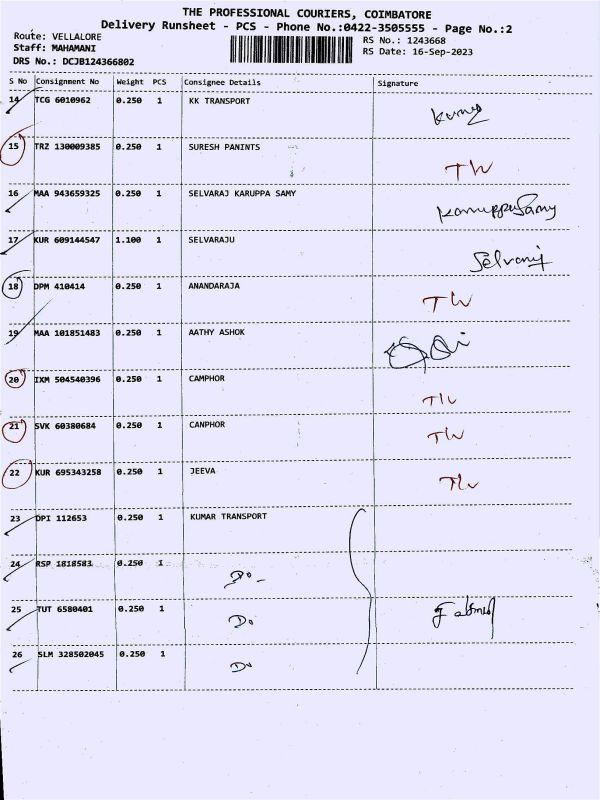 THE PROFESSIONAL COURIERS, COIMBATORE
Delivery Runsheet - PCS - Phone No.:0422-3505555 - Page No.:2
Route: VELLALORE
Staff: MAHAMANI
DRS No.: DCJB124366802
RS No.: 1243668
RS Date: 16-Sep-2023
S No Consignment No Weight PCS Consignee Details Signature
14 TCG 6010962 0.250 1 KK TRANSPORT
15 TRZ 130009385 0.250 1 SURESH PANINTS
16 MAA 943659325 0.250 1 SELVARAJ KARUPPA SAMY
17 KUR 609144547 1.100 1 SELVARAJU
Selvaraj
18 DPM 410414 0.250 1 ANANDARAJA
19 MAA 101851483 0.250 1 AATHY ASHOK
20 IXM 504540396 0.250 1 CAMPHOR
21 SVK 60380684 0.250 1 CANPHOR
22 KUR 695343258 0.250 1 JEEVA
23 DPI 112653 0.250 1 KUMAR TRANSPORT
24 RSP 1818583 0.250 1 Do-
25 TUT 6580401 0.250 1 Do
26 SLM 328502045 0.250 1 Do